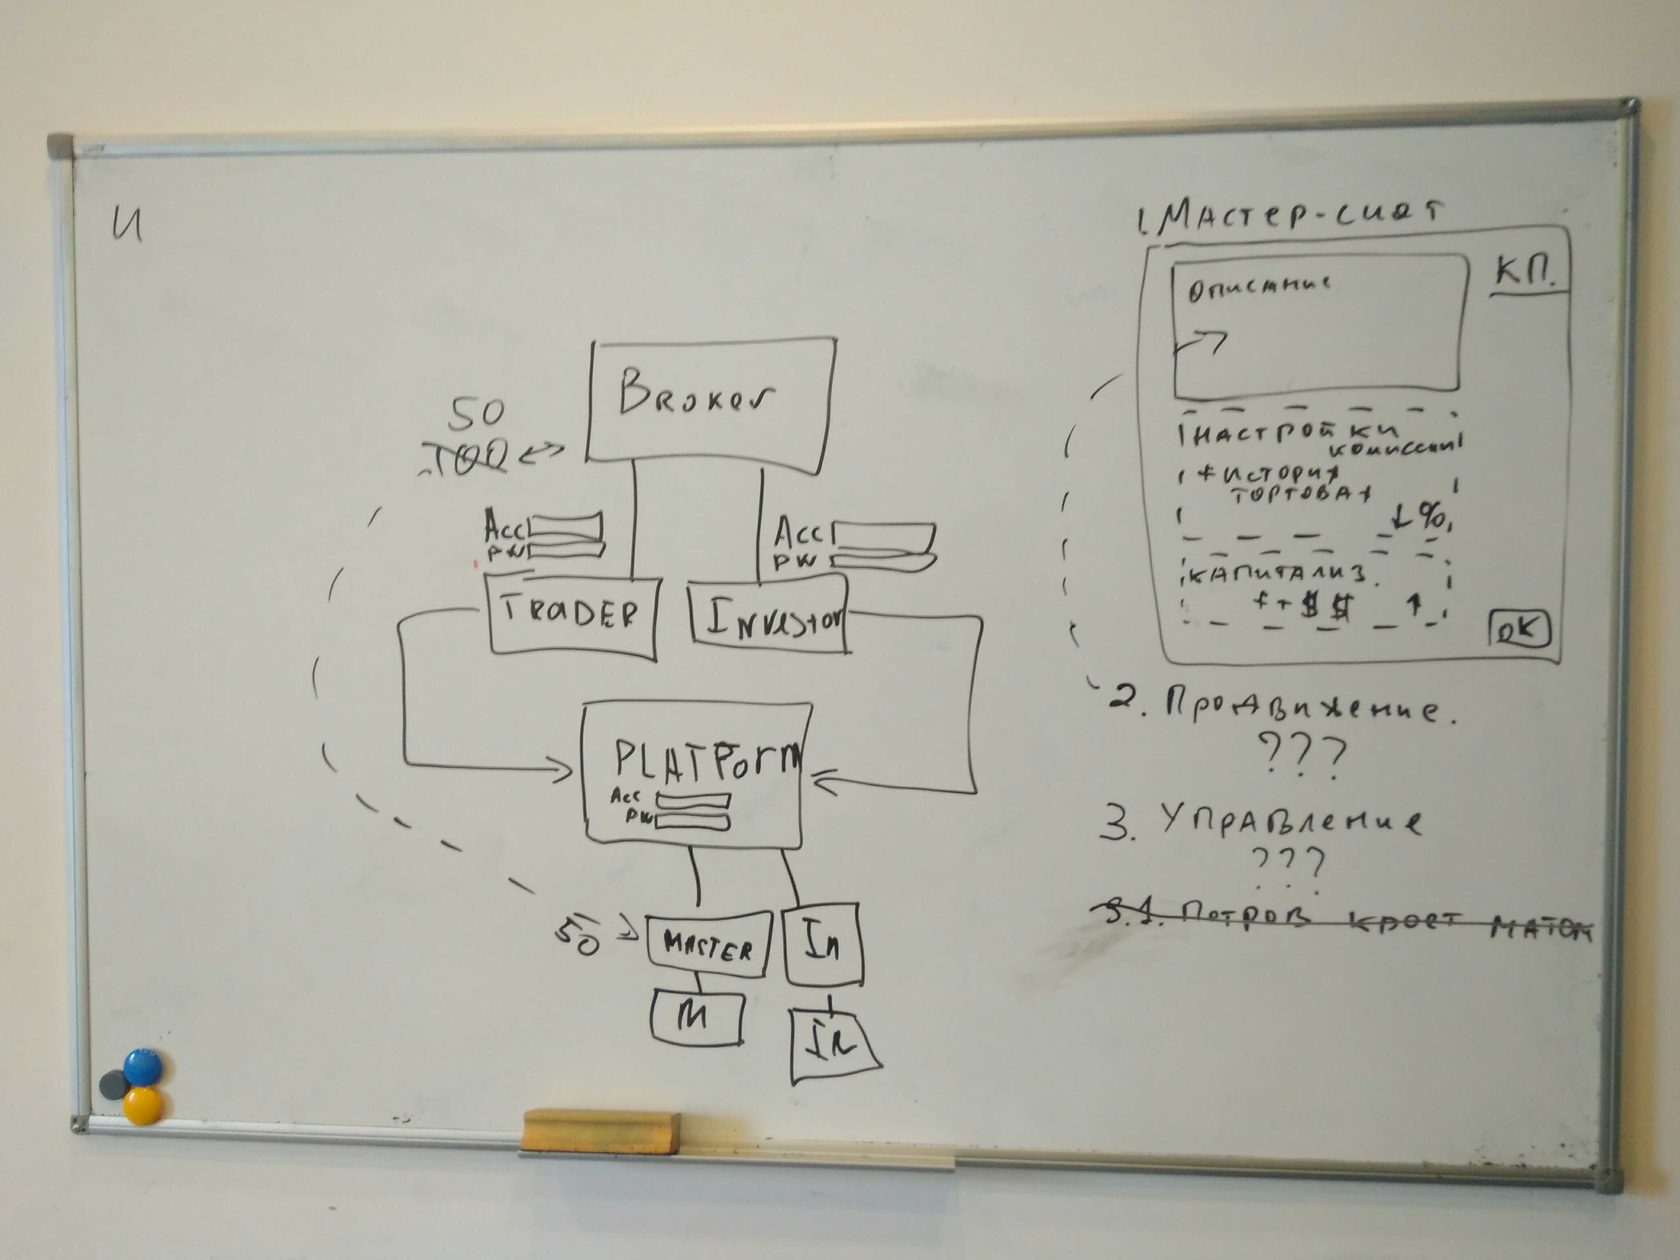 И
Broker
50
100
Acc
PW
Acc
PW
TRADER
Investor
PLATForm
Acc
PW
50
MASTER
In
M
In
1. Мастер-счет
КП.
Описание
Настройки
комиссии
+ История
торговая
↓ %
Капитализ.
++ $ $ ↑
OK
2. Продвижение.
???
3. Управление
???
3.1. Потров крост матом